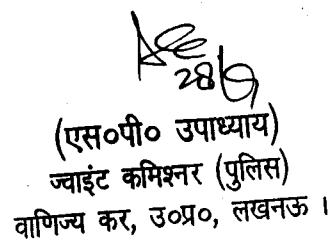 28/6
(एस०पी० उपाध्याय)
ज्वाइंट कमिश्नर (पुलिस)
वाणिज्य कर, उ०प्र०, लखनऊ ।